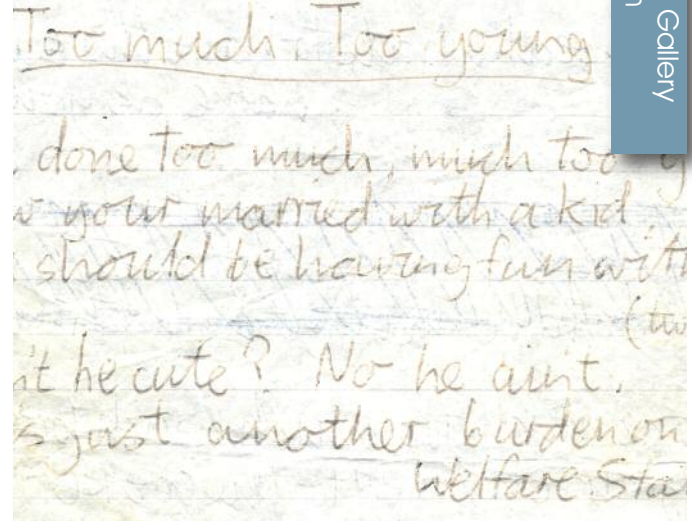 Too much. Too young
done too much, much too
your married with a kid
should be having fun with
he cute? No he aint.
just another burden on
Welfare
Gallery